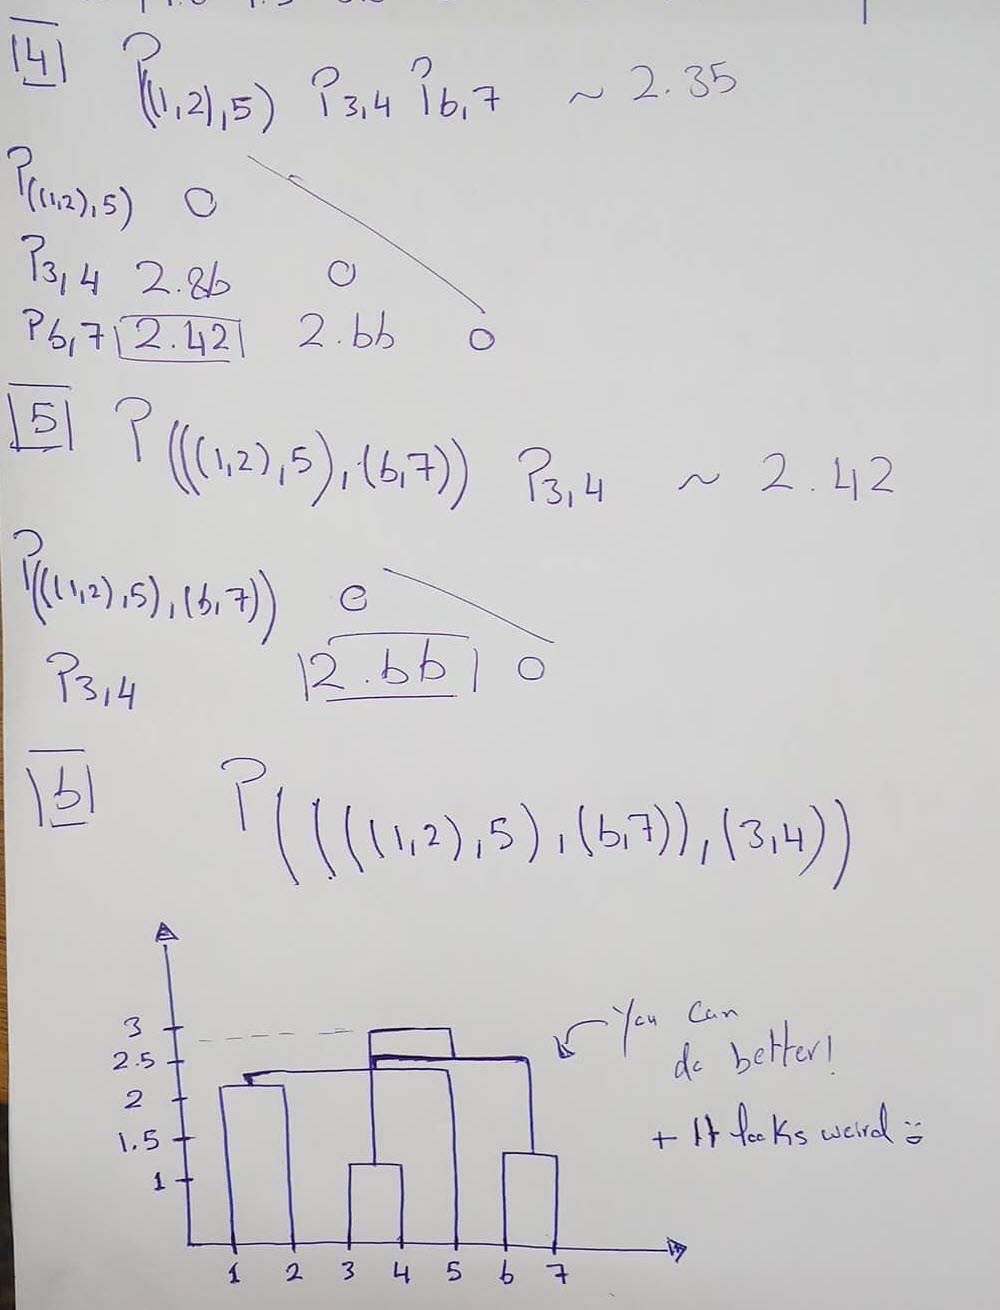 4 P((1,2),5) P3,4 P6,7 ~ 2.35
P((1,2),5) 0
P3,4 2.86 0
P6,7 2.42 2.66 0
5 P(((1,2),5),(6,7)) P3,4 ~ 2.42
P(((1,2),5),(6,7)) 0
P3,4 2.66 0
6 P((((1,2),5),(6,7)),(3,4))
3
2.5
2
1.5
1
1 2 3 4 5 6 7
You can
do better!
+ It looks weird